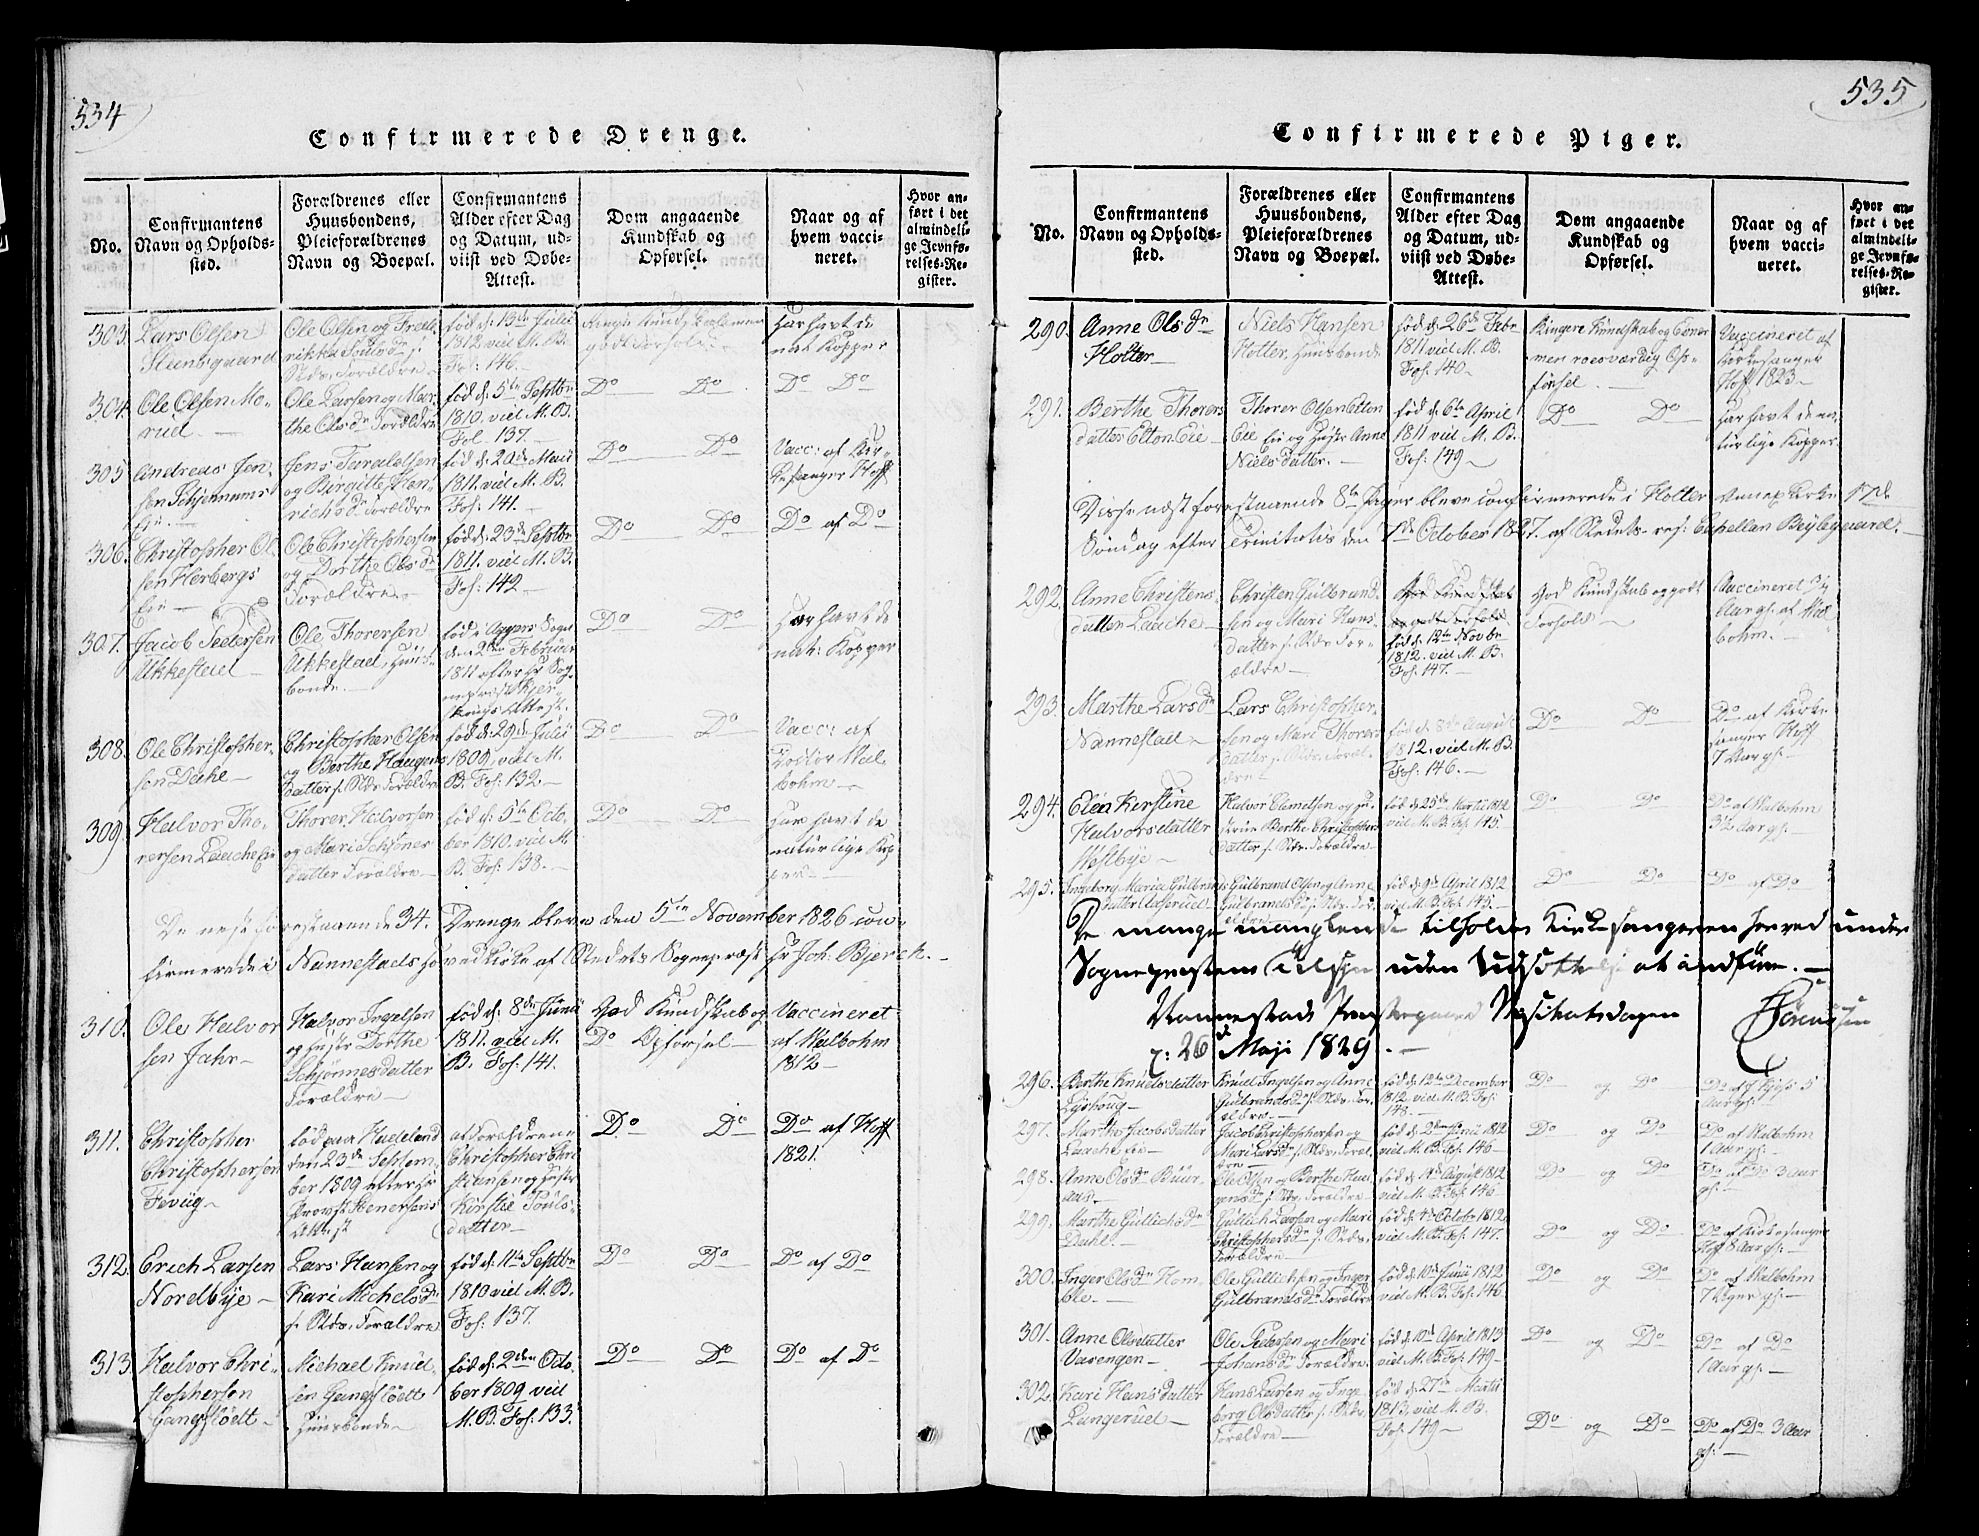 534
Confirmerede Drenge.
No.
Confirmantens
Navn og Opholds-
sted.
Forældrenes eller
Huusbondens,
Pleieforældrenes
Navn og Boepæl.
Confirmantens
Alder efter Dag
og Datum, ud-
viist ved Døbe-
Attest.
Dom angaaende
Kundskab og
Opførsel.
Naar og af
hvem vacci-
neret.
Hvor an-
ført i det
almindeli-
ge Jevnfø-
relses-Re-
gister.
303.
Lars Olsen
Steensgaard
Ole Olsen og Frede-
rikke
Forældre
fød d: 13de Julii
1812 vid M. B.
Fol: 146.
Har havt de
nat. Kopper
304.
Ole Olsen Mo-
rud.
Ole Larsen og Mar-
the Olsdr Forældre
fød d: 5te Septbr
1810. vid M. B.
Fol. 137.
Do Do
Do Do
305
Andreas Jen-
sen Schjennums
Eie.
og Birgitte Hen-
richsdr Forældre
fød d: 20de Marti
1811. vid M. B.
Fol: 141.
Do Do
Vacc: af Kir-
kesanger Hoff
306.
Christopher Ol-
sen Herbergs
Eie
Ole Christophersen
og Dorthe Olsdr
Forældre.
fød d: 23de Septbr
1811. vid M. B.
Fol: 142
Do Do
Do af Do
307.
Jacob Pedersen
Ukkestad
Ole Thorersen
Ukkestad, Huus-
bonde.
fød i Aggers Sogn
den 2den Februar
1811 efter Hr Sog-
nepræst
Attest.
Do Do
Har havt de
nat: Kopper
308.
Ole Christopher-
sen Dahe
Christopher Olsen
og Berthe Haagens-
datter s. Stds. Forældre
fød d: 29de Julii
1809, vid M.
B. Fol: 132.
Do Do
Vacc: af
Doctor Mal-
bohm
309.
Halvor Tho-
rersen Laache Eie
Thorer Halvorsen
og Mari Schjønnes-
datter Forældre
fød d: 5te Octo-
ber 1810. vid M.
B. Fol: 138.
Do Do
Har havt de
naturlige Kop-
per
De nest forestaaende 34. Drenge bleve den 5te November 1826 con-
firmerede i Nannestads Hovedkirke af Stedets Sognepræst Hr Joh: Bjerck.
310.
Ole Halvor-
sen Jahr
Halvor Ingelsen
og Hustr Dorthe
Schjønnesdatter
Forældre
fød d: 8de Junii
1811. vid M.
B. Fol: 141.
God Kundskab og
Do Opførsel
Vaccineret
af Malbohm
1812
311.
Christopher
Christophersen
Tevüg
fød paa Hadeland
den 23de Septem-
ber 1809 efter Hr
Provst Stenersens
Attest
af Forældrene
Christopher Chri-
stiansen og Hustr
Kirstie Pouls-
datter
Do Do
Do af Hoff
1821.
312.
Erich Larsen
Nordbÿe
Lars Hansen og
Kari Michelsdr
s. Stds. Forældre
fød d: 11te Septbr
1810 vid M. B.
Fol: 137.
Do Do
Do af Do
313.
Halvor Chri-
stophersen
Gangsfløedt
Michael Knud-
sen Gangsfløedt
Huusbonde
fød d: 2den Octo-
ber 1809 vid
M. B. Fol: 133.
Do Do
Do af Do
535
Confirmerede Piger.
No.
Confirmantens
Navn og Opholds-
sted.
Forældrenes eller
Huusbondens,
Pleieforældrenes
Navn og Boepæl.
Confirmantens
Alder efter Dag
og Datum, ud-
viist ved Døbe-
Attest.
Dom angaaende
Kundskab og
Opførsel.
Naar og af
hvem vacci-
neret.
Hvor an-
ført i det
almindeli-
ge Jevnfø-
relses-Re-
gister.
290.
Anne Olsdr
Holter
Niels Hansen
Holter, Huusbonde
fød d: 26de Febr
1811 vid M. B.
Fol. 140
Ringere Kundskab og
mer roesværdig Op-
førsel.
Vaccineret af
Kirkesanger
Hoff 1823
291.
Berthe Thorers-
datter Elton Eie
Thorer Olsen Elton
Eie og Hustr Anne
Nielsdatter.
fød d: 6te April
1811 vid M. B.
Fol: 149
Do Do
Har havt de na-
turlige Kopper
Disse næst forestaaende 8te Piger bleve confirmerede i Holter Annex Kirke 17de
Søndag efter Trinitatis den 7de October 1827. af Stedets res: Capellan Beylegaard.
292.
Anne Christens-
datter Laache
Christen Gulbrand-
sen og Mari Hans-
datter s. Stds. For-
ældre
fød d: 12te Novbr
1812. vid M. B.
Fol: 147.
God Kundskab og godt
Forhold
Vaccineret 3½
Aar gl. af Mal-
bohm.
293.
Marthe Larsdr
Nannestad
Lars Christopher-
sen og Mari Thorers-
datter s. Stds. Foræl-
dre
fød d: 8de August
1812. vid M. B.
Fol: 146.
Do Do
Do af Kirke-
sanger Hoff
7 Aar gl.
294.
Elea Kerstine
Halvorsdatter
Westbye
Halvor Clemetsen og Hu-
strue Berthe Christophers-
datter s. Stds. Forældre
fød d: 25de Martii 1812
vid M. B. Fol: 145.
Do Do
Do af Malbohm
3½ Aar gl.
295.
Ingeborg Maria Gulbrands-
datter
Gulbrand Olsen og Anne
Gulbrandsdr s. Stds. For-
ældre
fød d: 9de April 1812
vid M. B. Fol. 145.
Do Do
Do af Do
De mange manglende tilholdes Kirkesangeren herved under
Sognepræstens Tilsyn uden Udsættelse at indføre.
Nannestads Præstegaard Visitatsdagen
d: 26de Maji 1829.
Sørenssen
296.
Berthe Knudsdatter
Lÿshoug
Knud Ingelsen og Anne
Gulbrandsdr s. Stds. For-
ældre
fød d: 12te December
1812 vid M. B. Fol:
148.
Do og Do
Aar gl.
297.
Marthe Jacobsdatter
Laache Eie
Jacob Christophersen og
Mari Larsdr s. Stds. Foræl-
dre
fød d: 2den Junii 1812
vid M. B. Fol: 146
Do og Do
Do af Malbohm
1 Aar gl.
298.
Anne Olsdr Buur-
aas
Ole Olsen og Berthe Haa-
gensdr s. Stds. Forældre
fød d: 14de August 1812
vid M. B. Fol: 146
Do og Do
Do af Do 3 Aar
gl.
299.
Marthe Gullichsdr
Dahl.
Gullich Larsen og Mari
Christophersdr s. Stds.
Forældre
fød d: 4de Octobr 1812
vid M. B. Fol: 147.
Do og Do
Do af Kirkesanger
Hoff 8 Aar gl:
300.
Inger Olsdr Hem-
ble.
Ole Gullichsen og Inger
Gulbrandsdr Forældre
fød d: 10de Junii 1812
vid M. B. Fol: 146
Do og Do
Do af Malbohm
7 Uger gl.
301.
Anne Olsdatter
Varengen
Ole Pedersen og Mari
Johansdr Forældre.
fød d: 10de April 1813
vid M. B. Fol: 149
Do og Do
Do af Do
1 Aar gl:
302.
Kari Hansdatter
Langerud
Hans Larsen og Inge-
borg Olsdatter s. Stds.
Forældre
fød d: 27de Martii
1813. vid M. B.
Fol: 149
Do og Do
Do af Do 3 Aar
gl: